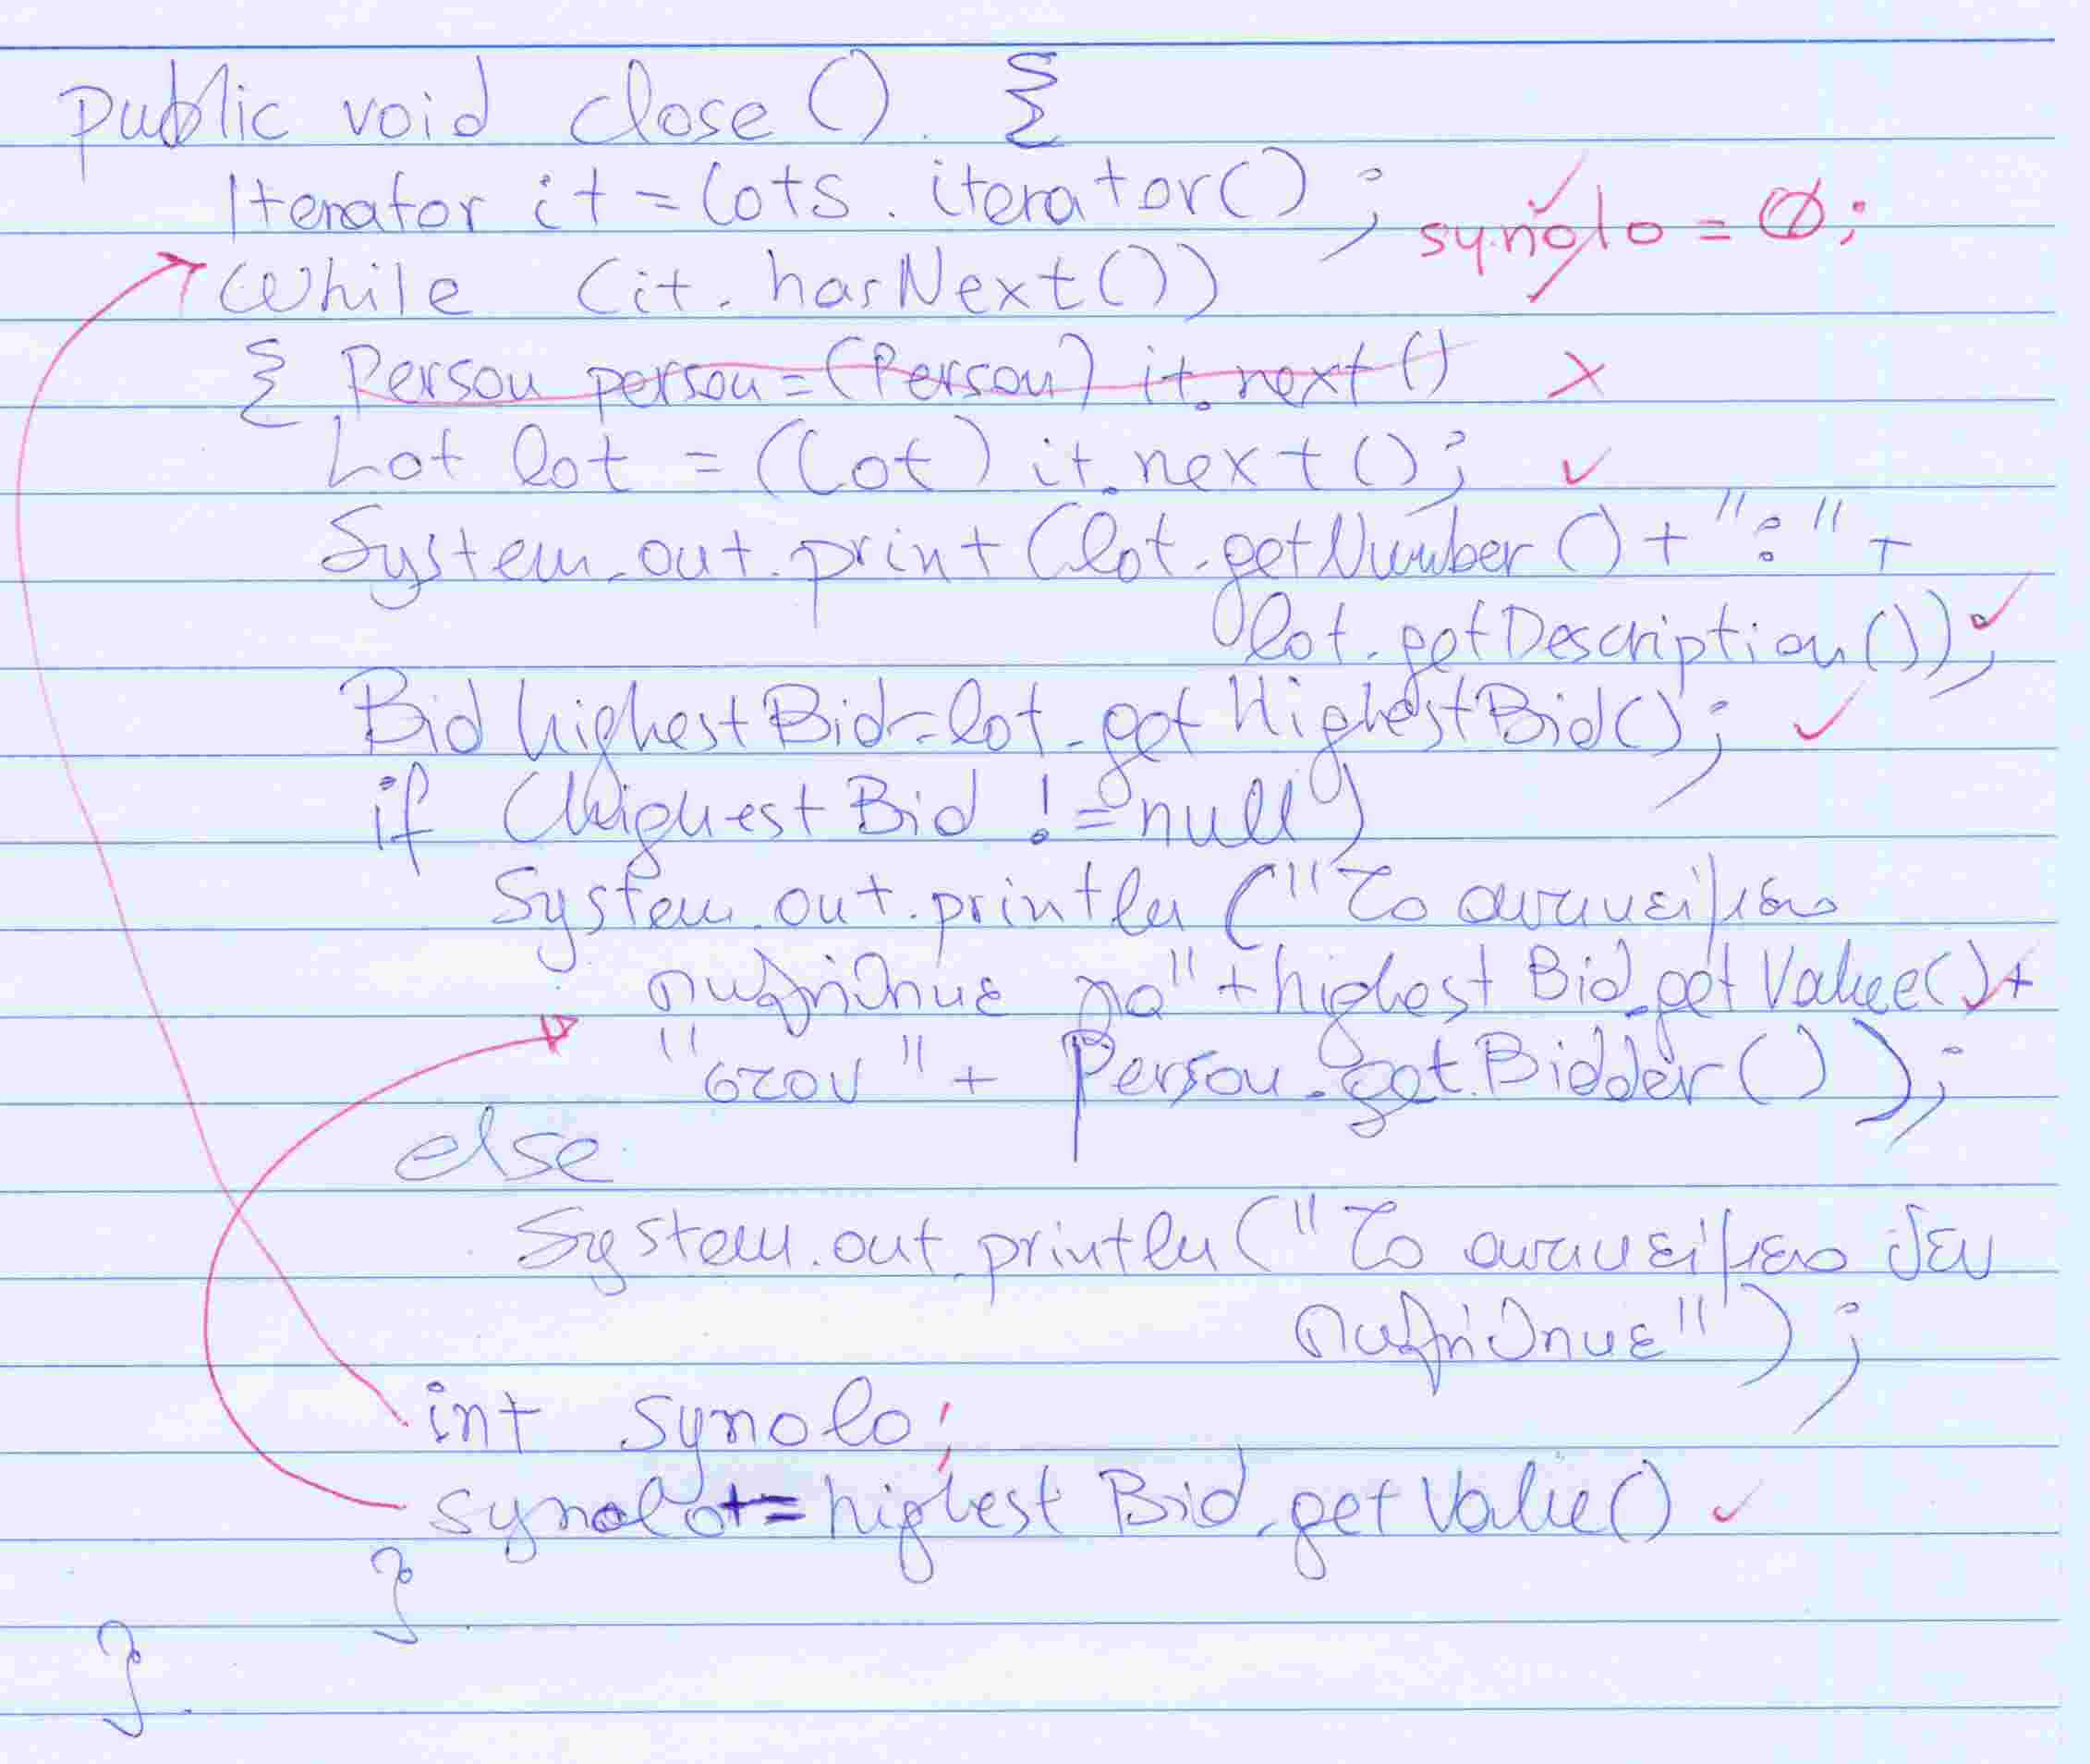 public void close() {
Iterator it = lots.iterator(); synolo = 0;
while (it.hasNext())
{ Person person = (Person) it.next()
Lot lot = (Lot) it.next();
System.out.print(lot.getNumber() + ":" +
lot.getDescription());
Bid highestBid = lot.getHighestBid();
if (highestBid != null)
System.out.println("Το αντικείμενο
πωλήθηκε για" + highestBid.getValue() +
"στον" + Person.getBidder());
else
System.out.println("Το αντικείμενο δεν
πωλήθηκε");
int synolo;
synolo += highestBid.getValue()
}
}